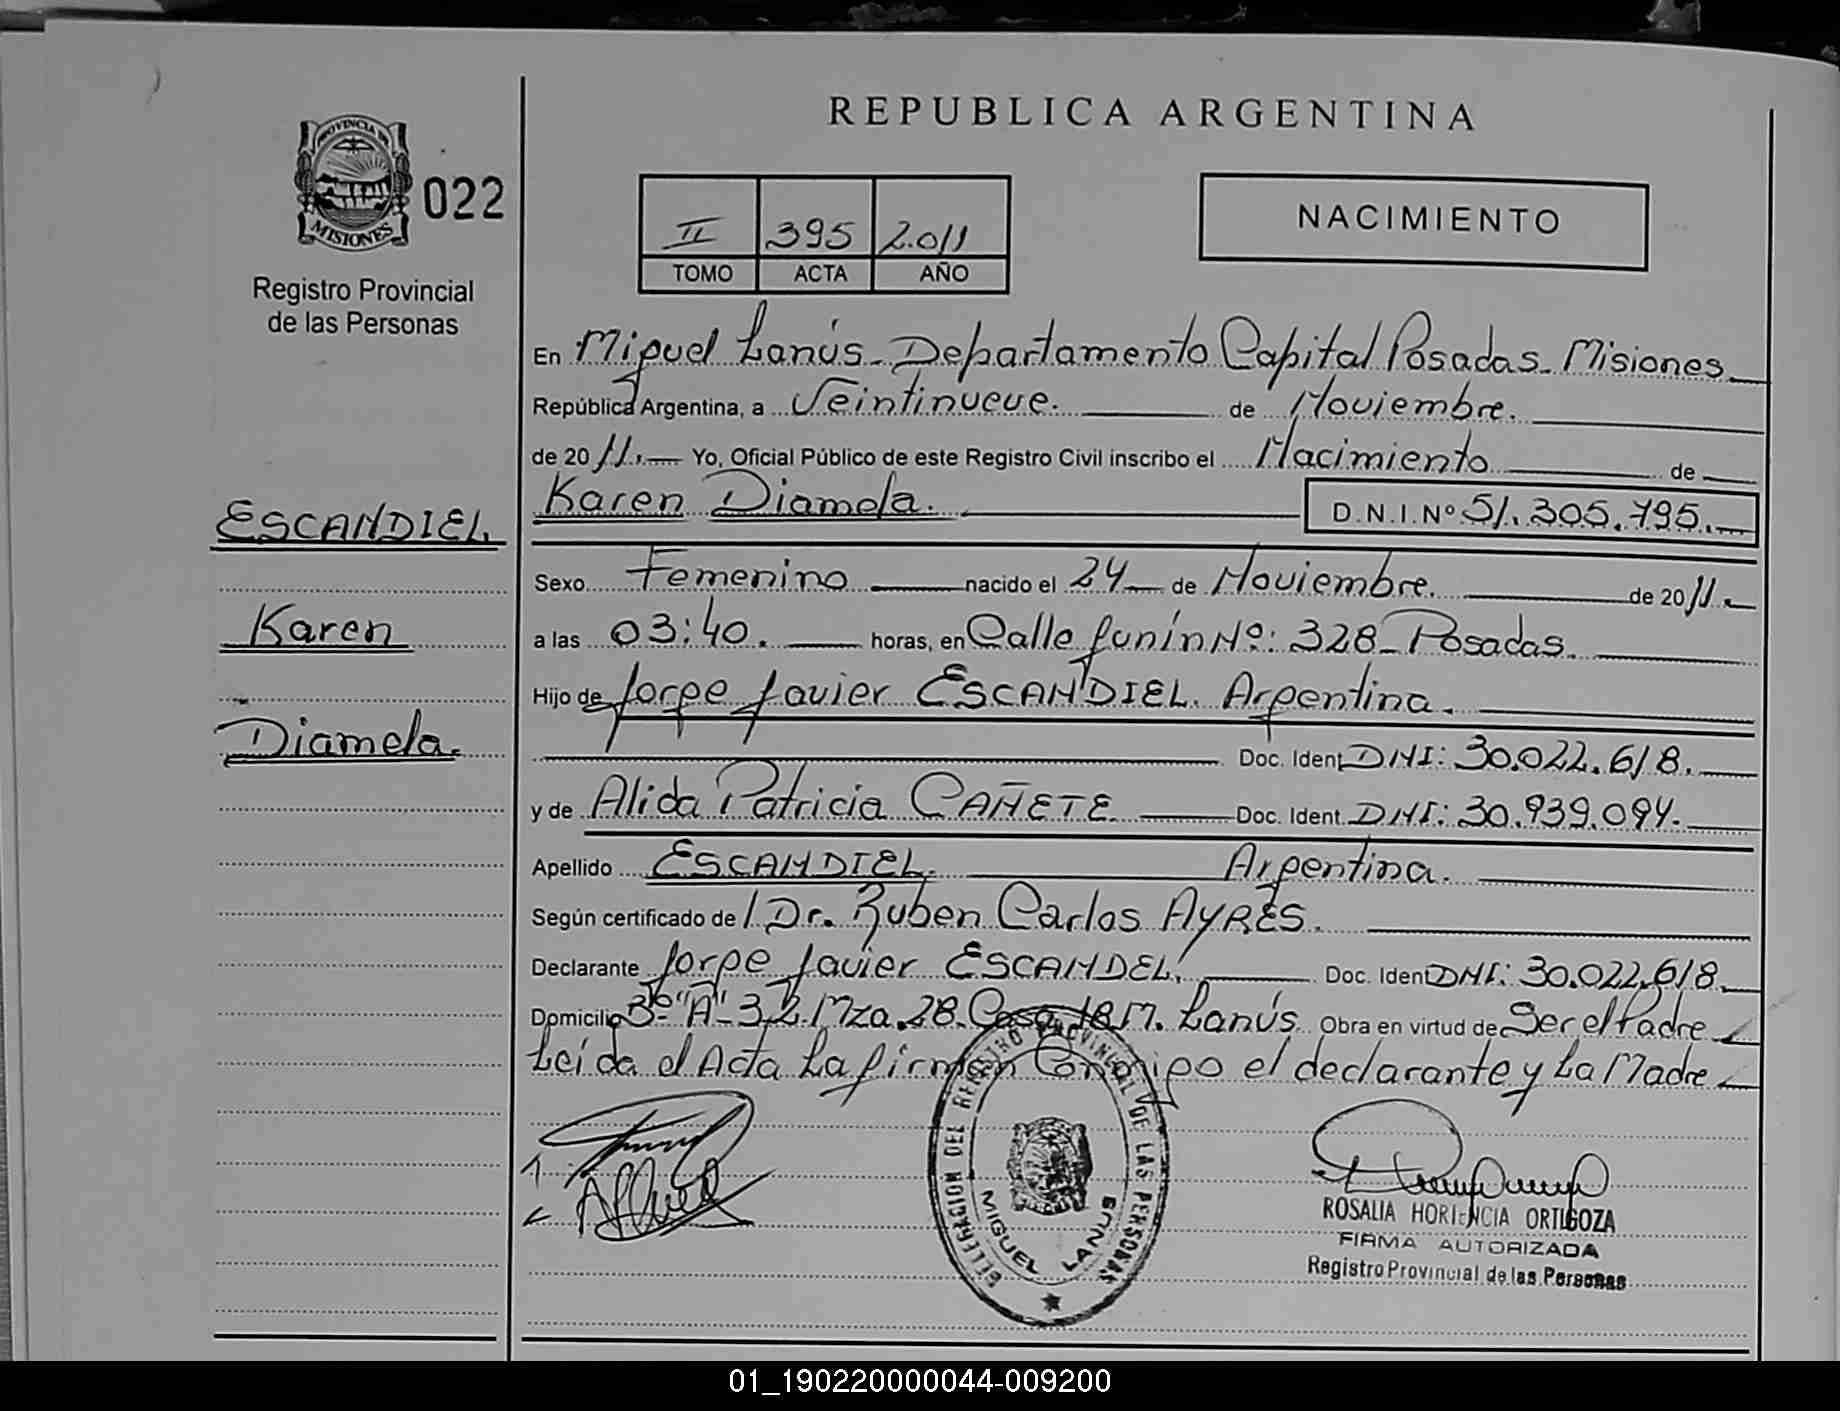 REPUBLICA ARGENTINA
PROVINCIA DE
MISIONES
022
Registro Provincial
de las Personas
II 395 2.011
TOMO ACTA AÑO
NACIMIENTO
En Miguel Lanús - Departamento Capital Posadas - Misiones
República Argentina, a Veintinueve. de Noviembre.
de 2011. Yo, Oficial Público de este Registro Civil inscribo el Nacimiento de
Karen Diamela. D.N.I.Nº 51.305.795.
ESCANDIEL.
Karen
Diamela.
Sexo Femenino nacido el 24 de Noviembre. de 2011.
a las 03:40. horas, en Calle Junín Nº: 328 - Posadas.
Hijo de Jorge Javier ESCANDIEL. Argentina.
Doc. Ident DNI: 30.022.618.
y de Alida Patricia CAÑETE Doc. Ident. DNI: 30.939.094.
Apellido ESCANDIEL. Argentina.
Según certificado de / Dr. Ruben Carlos AYRES.
Declarante Jorge Javier ESCANDEL. Doc. Ident DNI: 30.022.618.
Domicilio Bº "A" - 3,2 Mza. 28. Casa 18 M. Lanús Obra en virtud de Ser el Padre
Leida el Acta La firman Conmigo el declarante y La Madre
DELEGACION DEL REGISTRO PROVINCIAL DE LAS PERSONAS
MIGUEL LANUS
ROSALIA HORTENCIA ORTIGOZA
FIRMA AUTORIZADA
Registro Provincial de las Personas
01_190220000044-009200